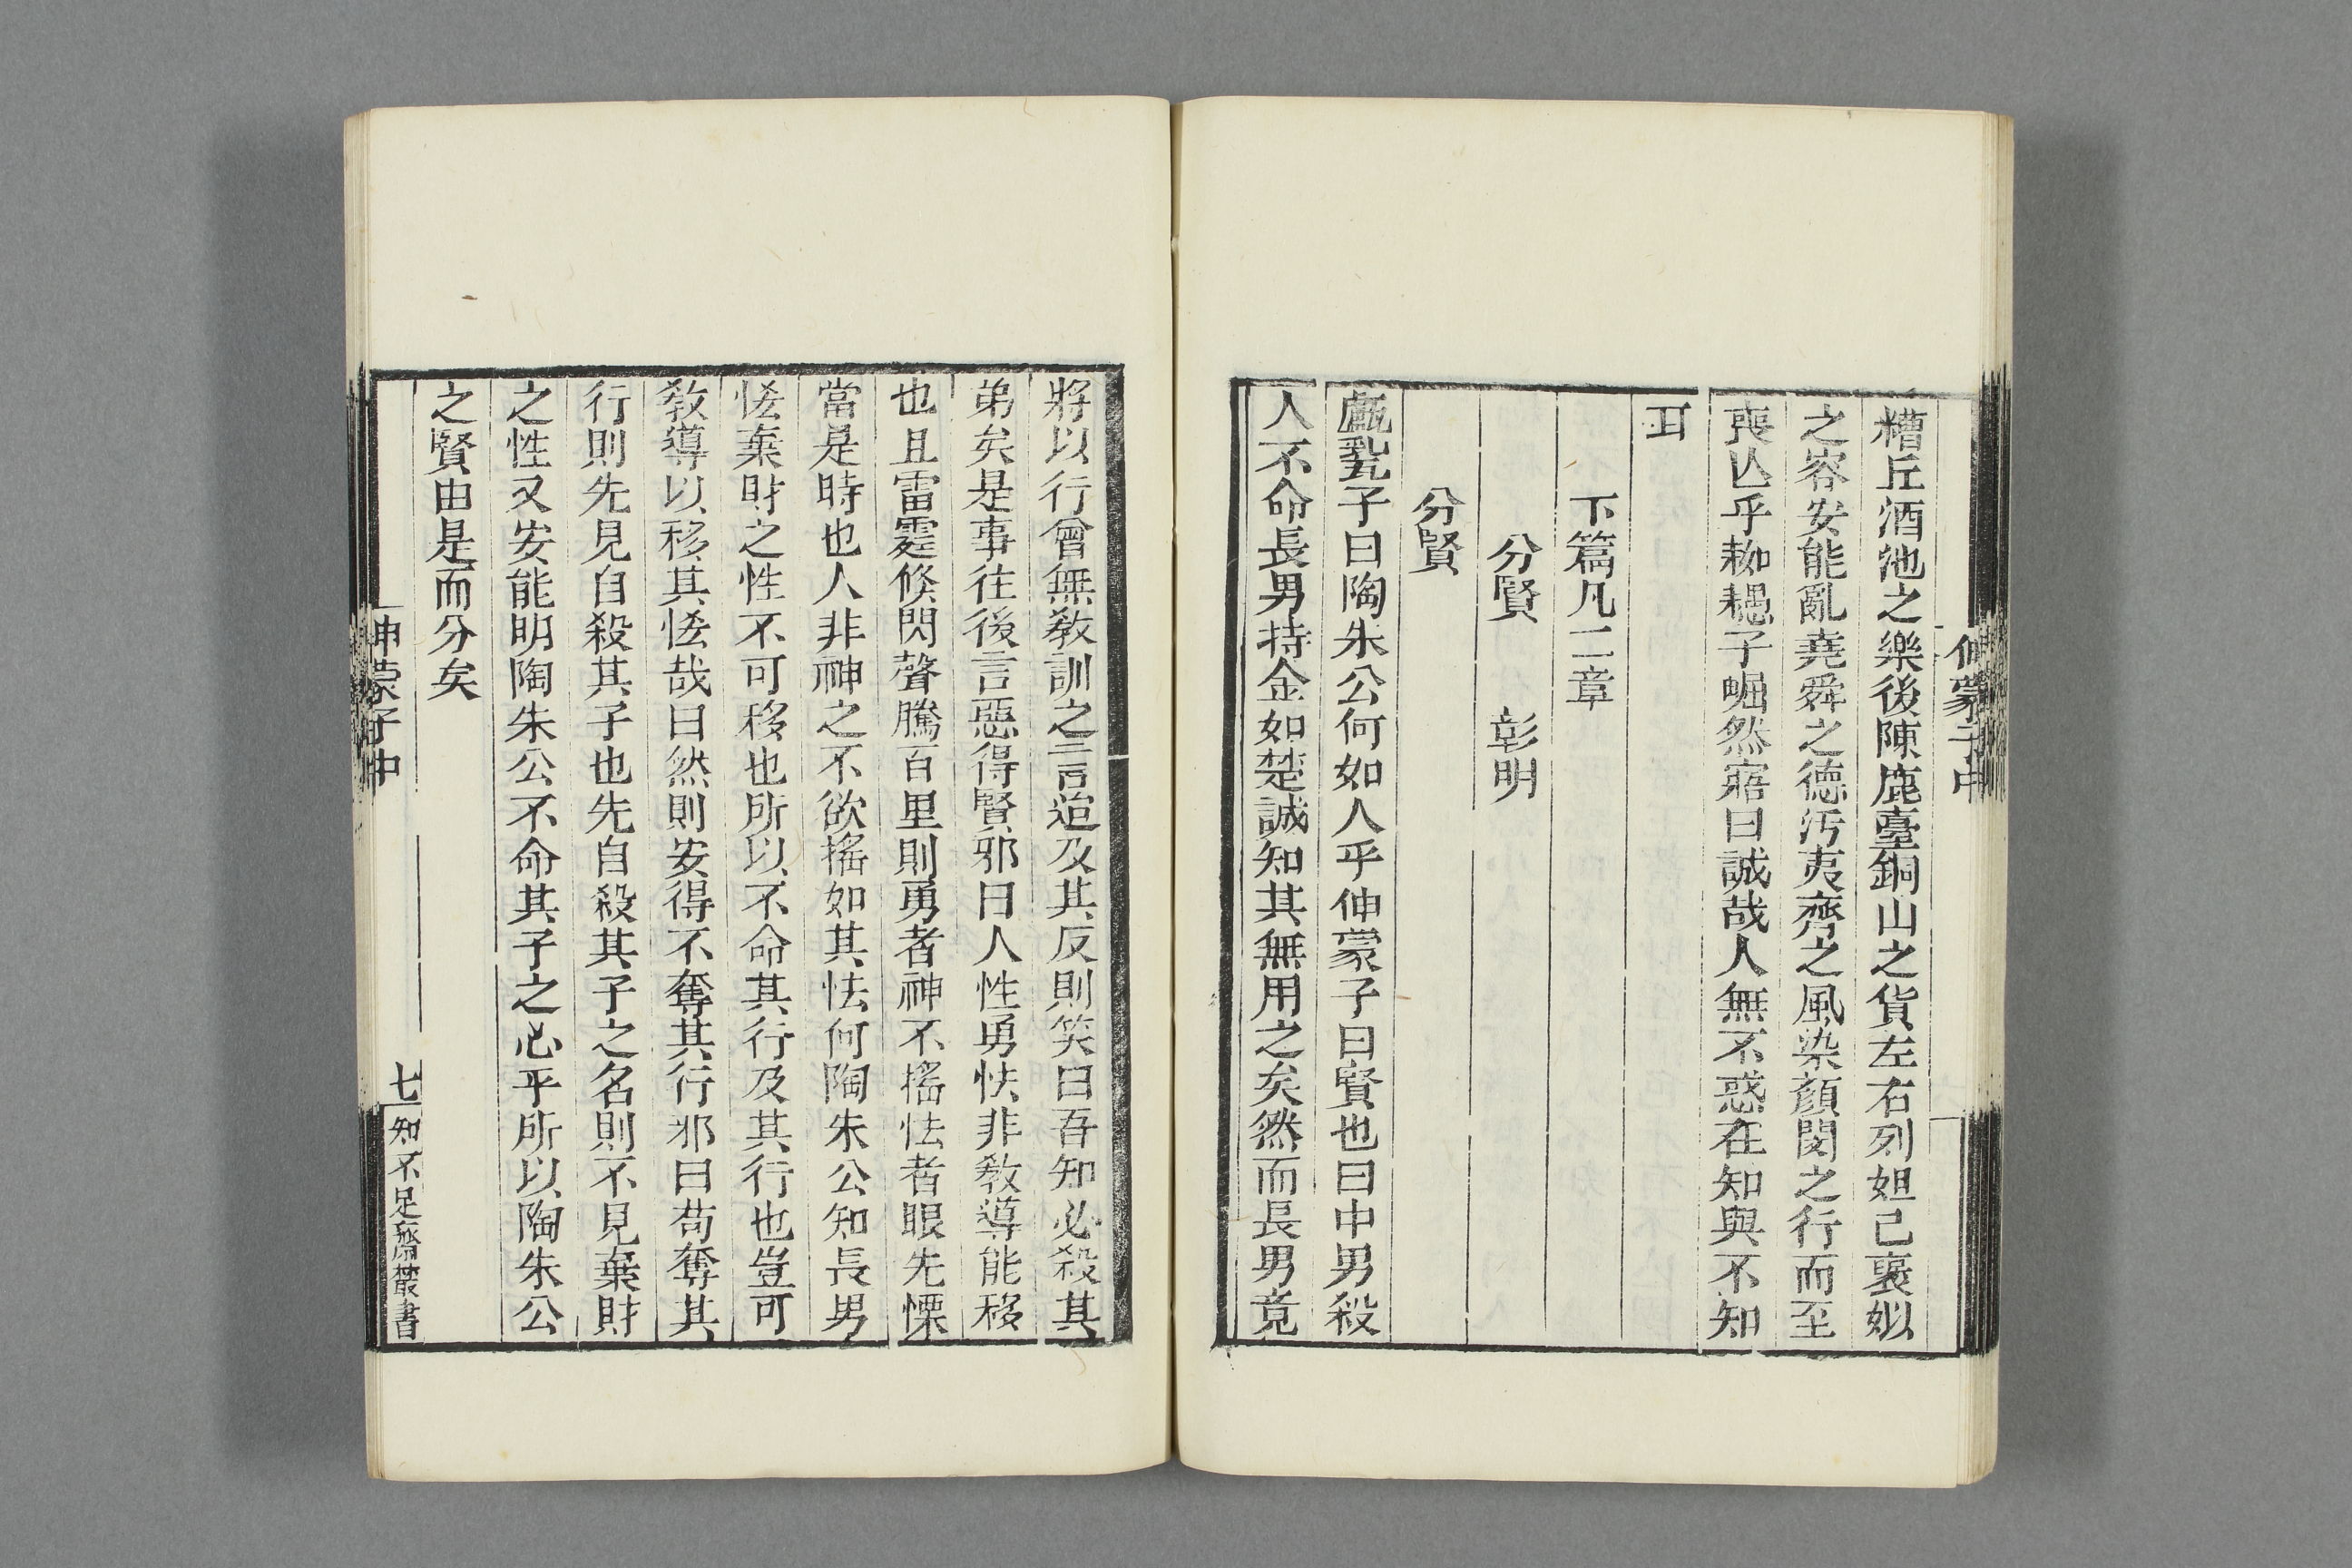 糟丘酒池之樂後陳鹿臺銅山之貨左右列妲己褒姒
之容安能亂堯舜之德汚夷齊之風染顏閔之行而至
喪亾乎耞耦子崛然寤曰誠哉人無不惑在知與不知
耳
下篇凡二章
分賢 彰明
分賢
子曰陶朱公何如人乎伸蒙子曰賢也曰中男殺
人不命長男持金如楚誠知其無用之矣然而長男竟
將以行曾無敎訓之一言迨及其反則笑曰吾知必殺其
弟矣是事往後言惡得賢邪曰人性勇怯非敎導能移
也且雷霆倏閃聲騰百里則勇者神不搖怯者眼先慄
當是時也人非神之不欲搖如其怯何陶朱公知長男
恡棄財之性不可移也所以不命其行及其行也豈可
敎導以移其恡哉曰然則安得不奪其行邪曰苟奪其
行則先見自殺其子也先自殺其子之名則不見棄財
之性又安能明陶朱公不命其子之心乎所以陶朱公
之賢由是而分矣
伸蒙子中
七
知不足齋叢書